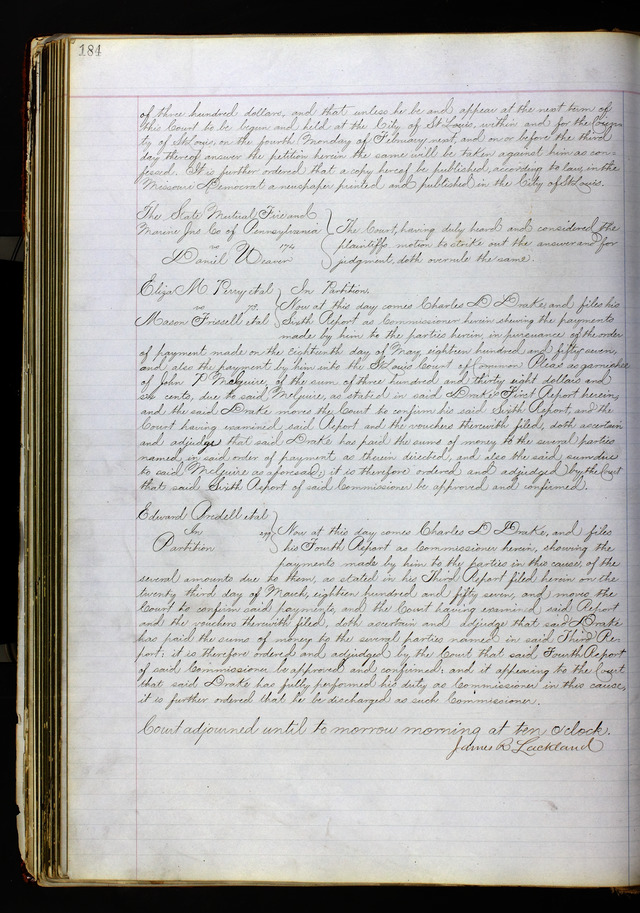 184
of three hundred dollars, and that unless he be and appear at the next term of
this Court to be begun and held at the City of St Louis, within and for the Coun
ty of St Louis, on the fourth Monday of February next, and on or before the third
day thereof answer the petition herein the same will be taken against him as con-
fessed. It is further ordered that a copy hereof be published, according to law, in the
Missouri Democrat a newspaper printed and published in the City of St Louis.
The State Mutual Fire and
Marine Ins Co of Pennsylvania
vs
Daniel Weaver
The Court, having duly heard and considered the
plaintiffs motion to strike out the answer and for
judgment, doth overrule the same.
Eliza M Perry et al
vs 75.
Mason Frissell et al
In Partition.
Now at this day comes Charles D Drake and files his
Sixth Report as Commissioner herein shewing the payments
made by him to the parties herein, in pursuance of the order
of payment made on the Eighteenth day of May, eighteen hundred and fifty seven,
and also the payment by him into the St Louis Court of Common Pleas as garnishee
of John P McGuire, of the sum of three hundred and thirty eight dollars and
six cents, due to said McGuire, as stated in said Drakes First Report herein;
and the said Drake moves the Court to confirm his said Sixth Report, and the
Court having examined said Report and the vouchers therewith filed, doth ascertain
and adjudge that said Drake has paid the sums of money to the several parties
named in said order of payment as therein directed, and also the said sum due
to said McGuire as aforesaid; it is therefore ordered and adjudged by the Court
that said Sixth Report of said Commissioner be approved and confirmed.
Edward Bredell et al
In
Partition
Now at this day comes Charles D Drake, and files
his Fourth Report as Commissioner herein, showing the
payments made by him to the parties in this cause, of the
several amounts due to them, as stated in his Third Report filed herein on the
twenty third day of March, eighteen hundred and fifty seven, and moves the
Court to confirm said payments, and the Court having examined said Report
and the vouchers therewith filed, doth ascertain and adjudge that said Drake
has paid the sums of money to the several parties named in said Third Re-
port; it is therefore ordered and adjudged by the Court that said Fourth Report
of said Commissioner be approved and confirmed; and it appearing to the Court
that said Drake has fully performed his duty as Commissioner in this cause,
it is further ordered that he be discharged as such Commissioner.
Court adjourned until to morrow morning at ten o'clock.
James R Lackland